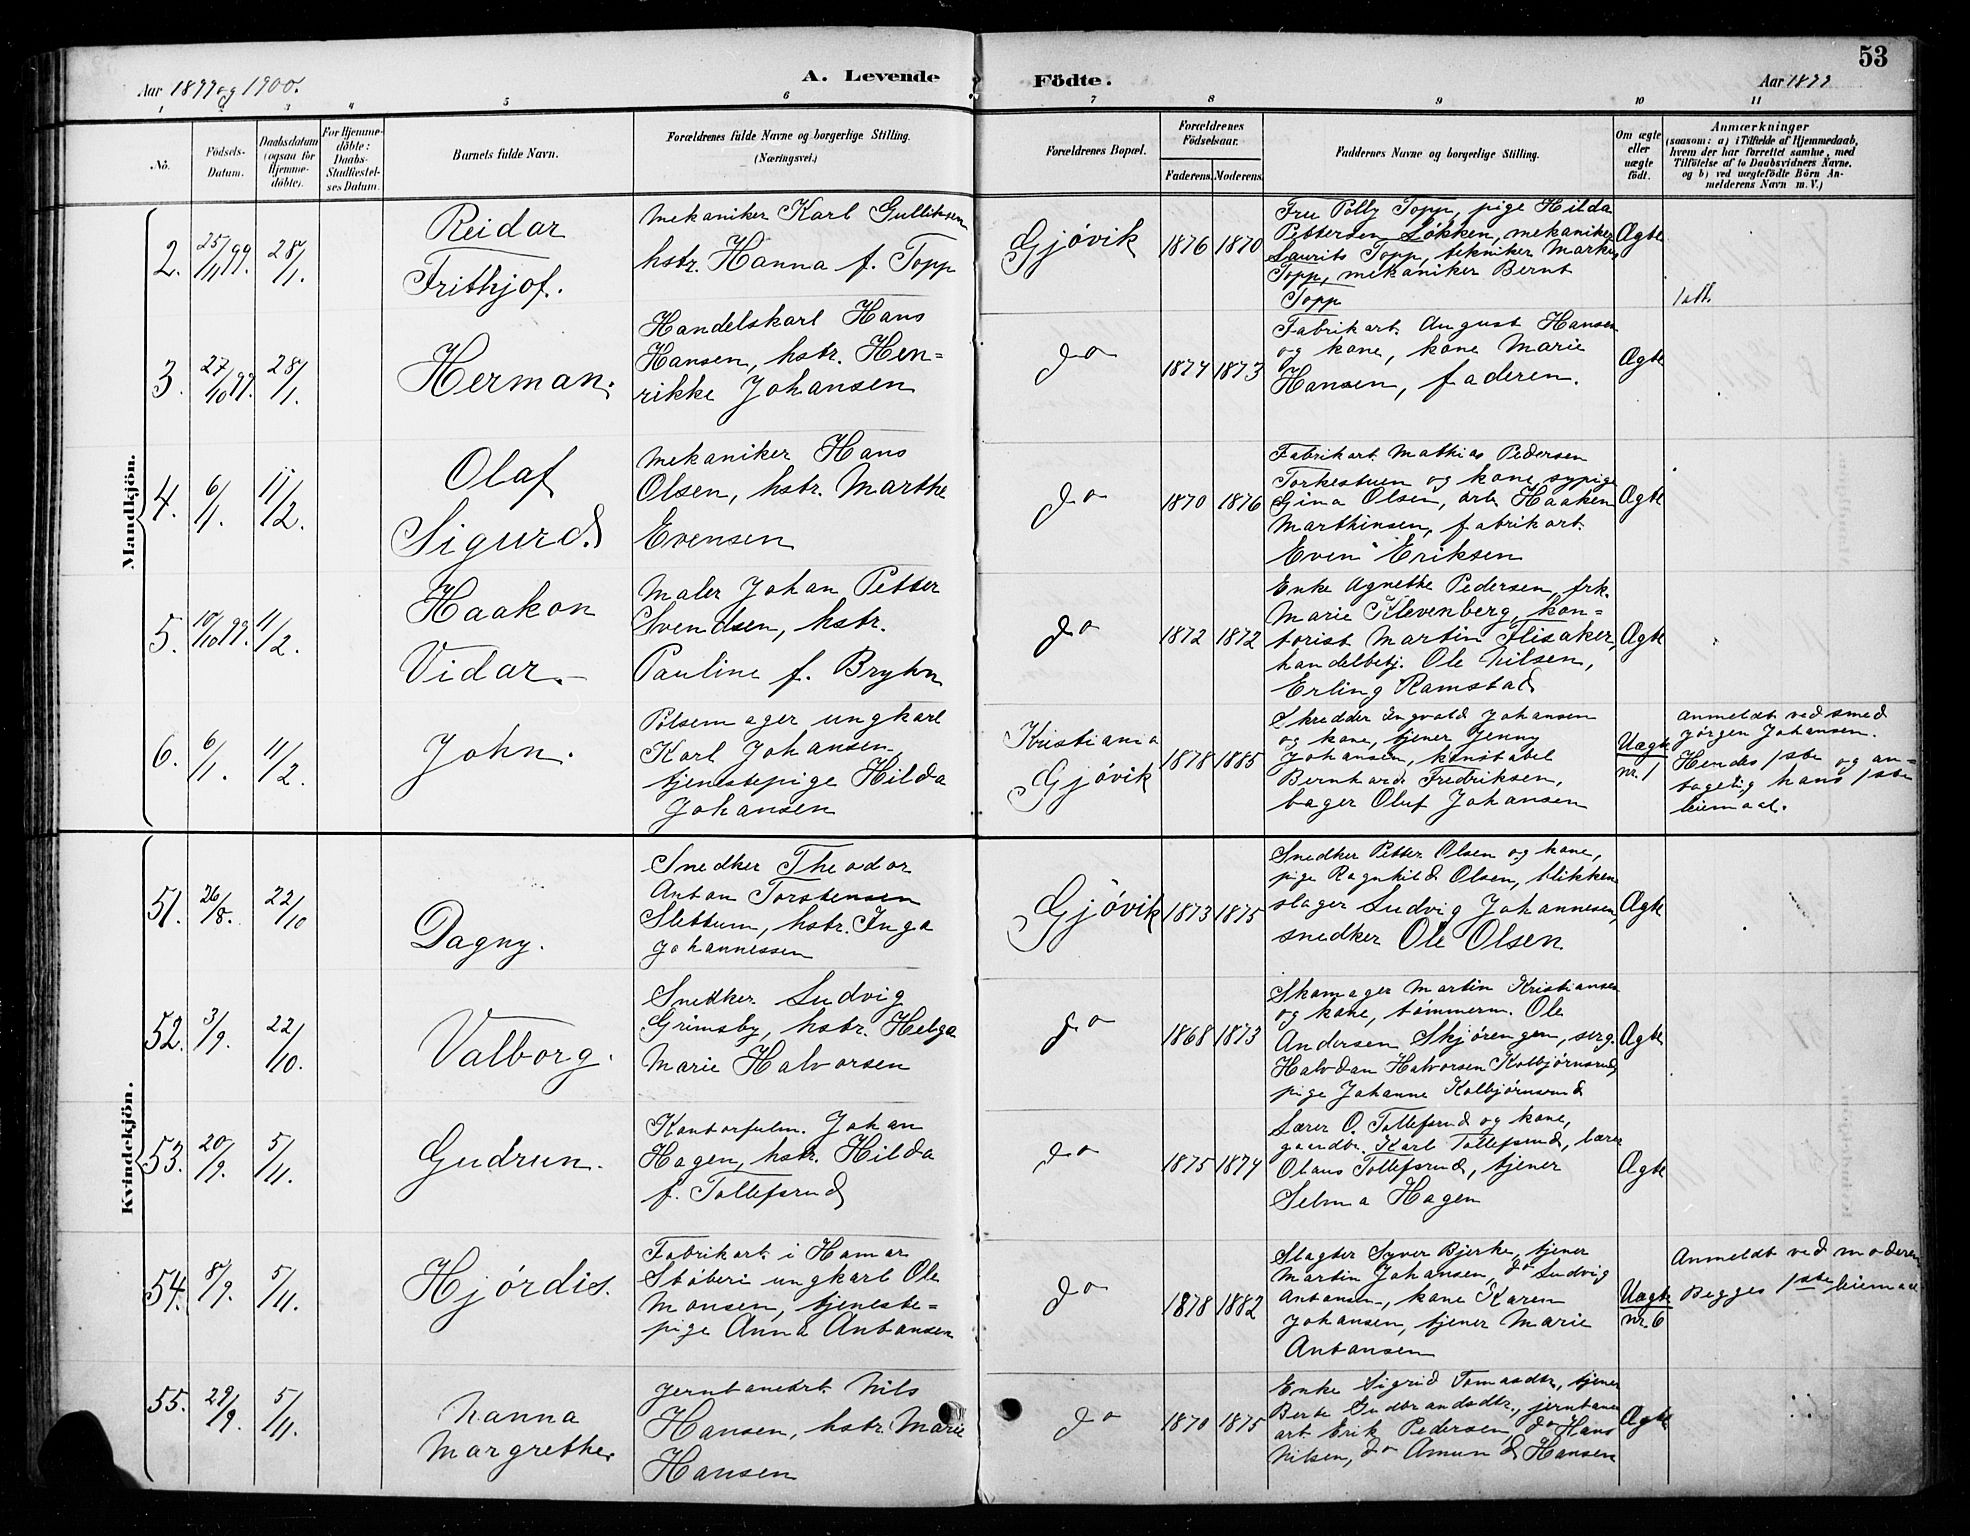 53
Aar 1899 og 1900.
A. Levende Födte.
Aar 1899
1 2 3 4 5 6 7 8 9 10 11
No.
Födsels-
Datum.
Daabsdatum
(ogsaa for
Hjemme-
döbte).
For Hjemme-
döbte:
Daabs-
Stadfæstel-
ses Datum.
Barnets fulde Navn.
Forældrenes fulde Navne og borgerlige Stilling.
(Næringsvei.)
Forældrenes Bopæl.
Forældrenes
Födselsaar.
Faderens. Moderens.
Faddernes Navne og borgerlige Stilling.
Om ægte
eller
uægte
födt.
Anmærkninger
(saasom: a) i Tilfælde af Hjemmedaab,
hvem der har forrettet samme, med
Tilföielse af to Daabsvidners Navne.
og b) ved uægtefödte Börn An-
melderens Navn m. V.)
Mandkjön.
2. 25/11 99. 28/1.
Reidar
Frithjof.
Mekaniker Karl Gulliksen
hstr. Hanna f. Topp
Gjövik
1876 1870
Fru Polly Topp, pige Hilda
Pettersen Løkken, mekaniker
Laurits Topp, tekniker Markus
Topp, mekaniker Bernt
Topp
Ægte
3. 27/10 99. 28/1.
Herman.
Handelskarl Hans
Hansen, hstr. Hen-
rikke Johansen
do
1874 1873
Fabrikarb. August Hansen
og kone, kone Marie
Hansen, faderen.
Ægte
4. 6/1. 11/2.
Olaf
Sigurd.
Mekaniker Hans
Olsen, hstr. Marthe
Evensen
do
1870 1876
Fabrikarb. Mathias Pedersen
Torkestuen og kone, sypige
Gina Olsen, arb. Haaken
Marthinsen, fabrikarb.
Even Eriksen
Ægte
5. 10/10 99. 11/2.
Haakon
Vidar.
Maler Johan Petter
Svendsen, hstr.
Pauline f. Bryhn
do
1872 1872
Enke Agnethe Pedersen, frk.
Marie Klevenberg, kon-
torist Martin Flisaker,
handelbetj. Ole Nilsen,
Erling Ramstad
Ægte
6. 6/1. 11/2.
John.
Pølsemager ungkarl
Karl Johansen,
tjenestepige Hilda
Johansen
Kristiania
Gjövik
1878 1885
Skredder Ingvald Johansen
og kone, tjener Jenny
Johansen, konstabel
Bernhard Fredriksen,
bager Oluf Johansen
Uægte
nr. 1
Anmeldt ved smed
Jørgen Johansen.
Hendes 1ste og an-
tagelig hans 1ste
leiemaal.
Kvindekjön.
51. 26/8. 22/10
Dagny.
Snedker Theodor
Anton Torstensen
Slettum, hstr. Inga
Johannessen
Gjövik
1873 1875
Snedker Petter Olsen og kone,
pige Ragnhild Olsen, blikken
slager Ludvig Johannesen,
snedker Ole Olsen
Ægte
52. 3/9. 22/10.
Valborg.
Snedker Ludvig
Grimsby, hstr. Helga
Marie Halvorsen
do
1868 1873
Skomager Martin Kristiansen
og kone, tømmerm. Ole
Andersen Skjørengen, serg.
Halvdan Halvorsen Kolbjørnsrud,
pige Johanne Kolbjørnsrud
Ægte
53. 20/9. 5/11.
Gudrun.
Kontorfulm. Johan
Hagen, hstr. Hilda
f. Tollefsrud
do
1875 1874
Lærer O. Tollefsrud og kone,
gaardbr. Karl Tollefsrud, lærer
Olaus Tollefsrud, tjener
Selma Hagen
Ægte
54. 8/9. 5/11.
Hjördis.
Fabrikarb. i Hamar
Støberi ungkarl Ole
Monsen, tjeneste-
pige Anna Antonsen
do
1878 1882
Slagter Syver Bjerke, tjener
Martin Johansen, do Ludvig
Antonsen, kone Karen
Johansen, tjener Marie
Antonsen
Uægte
nr. 6
Anmeldt ved moderen
Begges 1ste leiemaal
55. 29/9. 5/11.
Nanna
Margrethe.
Jernbanearb. Nils
Hansen, hstr. Marie
Hansen
do
1870 1875
Enke Sigrid Tomasdtr., tjener
Berte Gudbrandsdtr., jernbane
arb. Erik Pedersen, do Hans
Nilsen, do Amund Hansen
Ægte